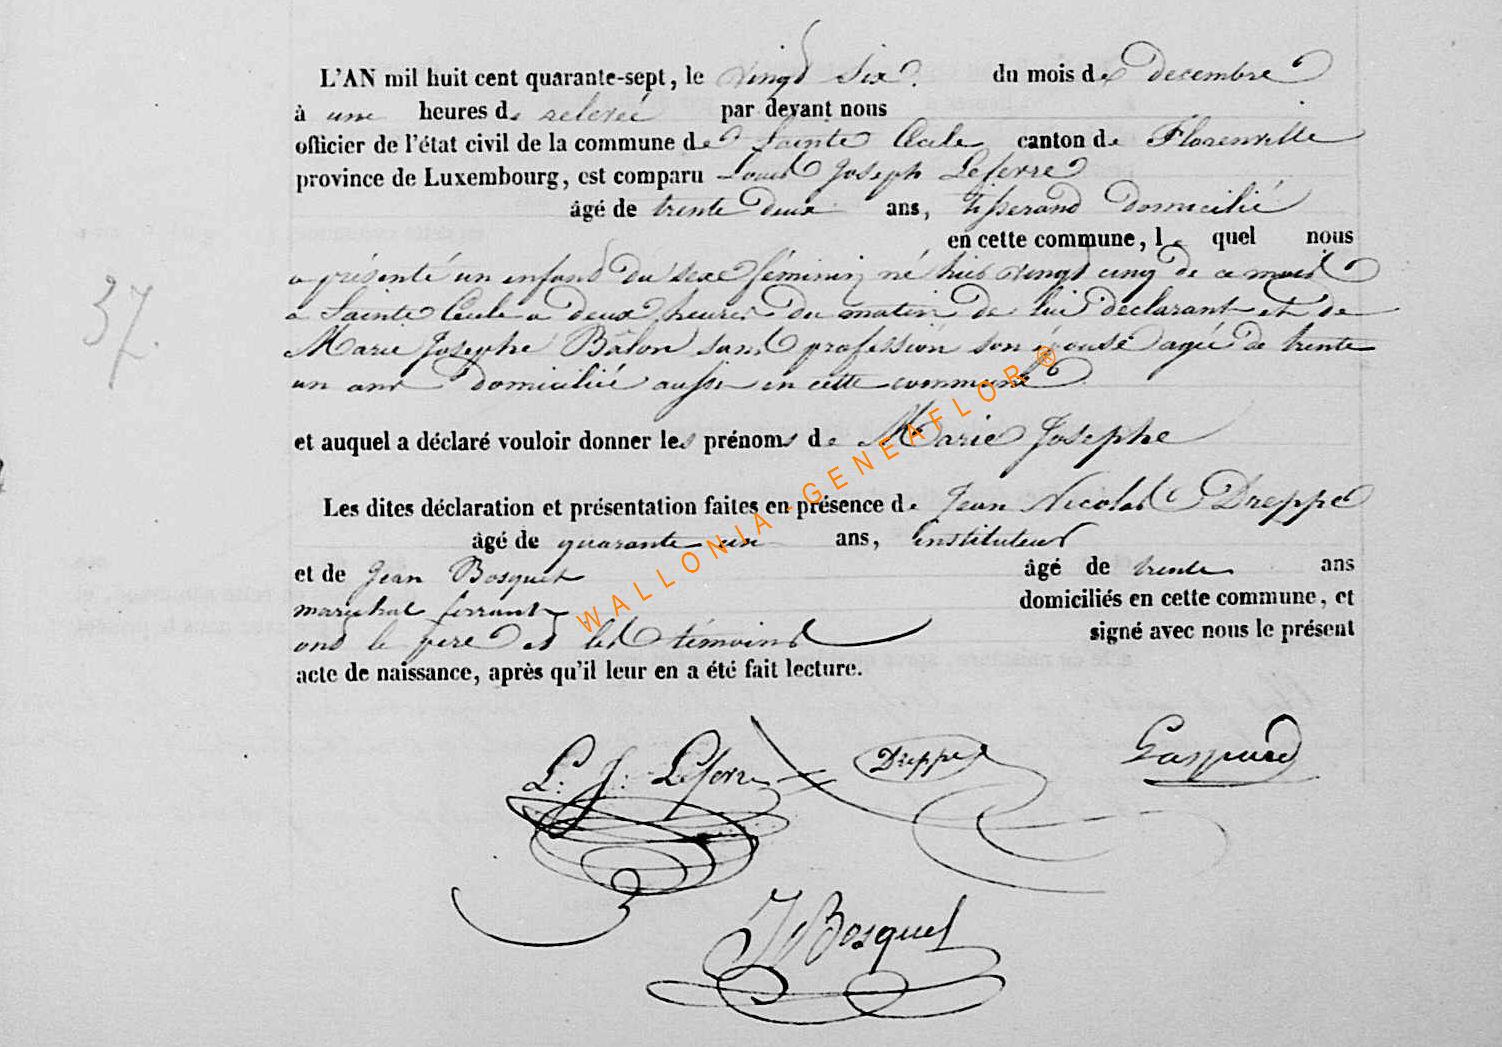 L'AN mil huit cent quarante-sept, le vingt six du mois de decembre
à une heures de relevée par devant nous
officier de l'état civil de la commune de Sainte Cecile canton de Florenville
province de Luxembourg, est comparu Louis Joseph Lefevre
âgé de trente deux ans, tisserand domicilié
en cette commune, le quel nous
a présenté un enfant du sexe féminin né hier vingt cinq de ce mois
a Sainte Cecile a deux heures du matin de lui declarant et de
Marie Josephe Balon sans profession son épouse agée de trente
un ans domiciliée aussi en cette commune
37.
et auquel a déclaré vouloir donner les prénoms de Marie Josephe
Les dites déclaration et présentation faites en présence de Jean Nicolas Dreppe
âgé de quarante ans, instituteur
et de Jean Bosquet âgé de trente ans
marechal ferrant domiciliés en cette commune, et
ont le pere et les témoins signé avec nous le présent
acte de naissance, après qu'il leur en a été fait lecture.
L. J. Lefevre Dreppe Gaspard
J Bosquet
WALLONIA-GENEAFLOR®